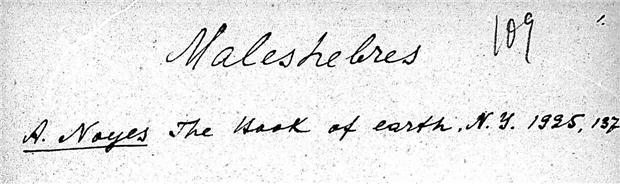 Maleshebres 109
A. Noyes The Book of earth, N.Y. 1925, 137